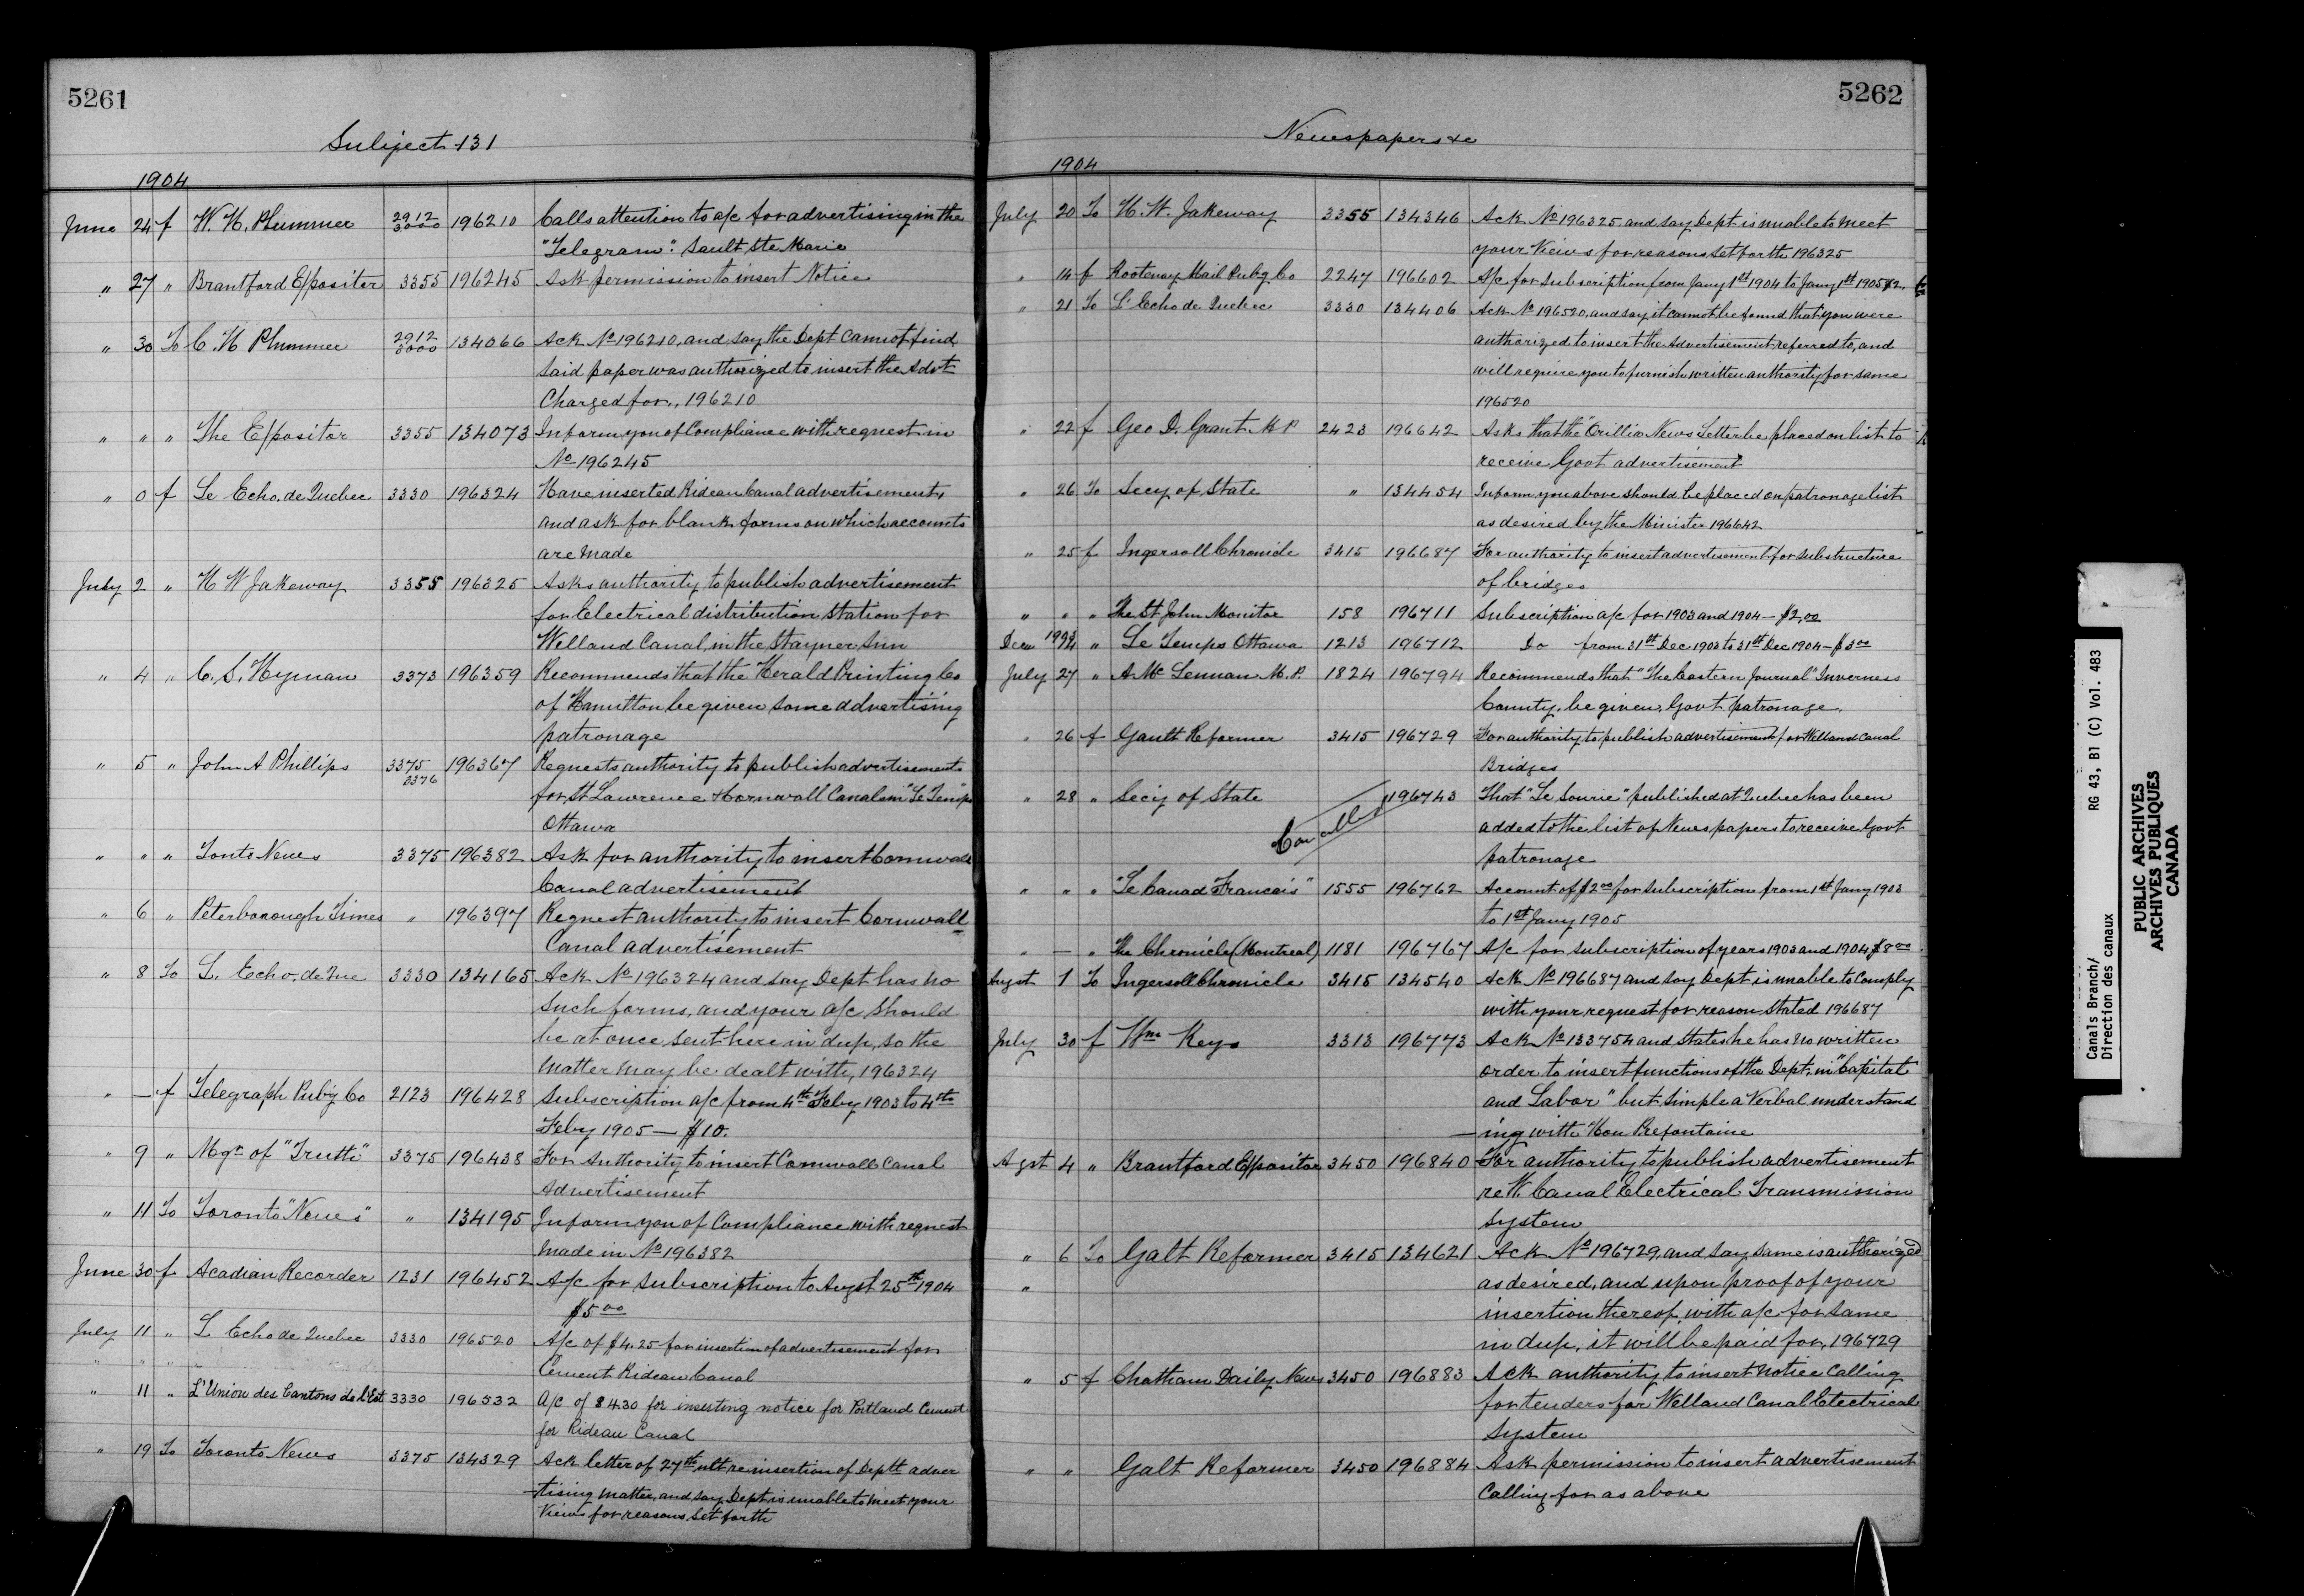 5261
Subject 131
1904
June 24 f W. H. Plummer 2912 3000 196210 Calls attention to a/c for advertising in the
"Telegram". Sault Ste Marie
" 27 " Brantford Expositor 3355 196245 Ask permission to insert Notice
" 30 To C. H Plummer 2912 3000 134066 Ack No 196210, and say the Dept cannot find
said paper was authorized to insert the Advt
Charged for, 196210
" " " The Expositor 3355 134073 Inform you of Compliance with request in
No 196245
" 0 f Le Echo de Quebec 3330 196324 Have inserted Rideau Canal advertisement,
and ask for blank forms on which accounts
are made
July 2 " H W Jakeway 3355 196325 Asks authority to publish advertisement
for Electrical distribution Station for
Welland Canal, in the Stayner Sun
" 4 " C. S. Hyman 3373 196359 Recommends that the Herald Printing Co
of Hamilton be given some advertising
patronage
" 5 " John A Phillips 3375 3376 196367 Requests authority to publish advertisements
for St Lawrence & Cornwall Canals in "Le Temps"
Ottawa
" " " Tonto News 3375 196382 Ask for authority to insert Cornwall
Canal advertisement
" 6 " Peterborough Times " 196397 Request authority to insert Cornwall
Canal advertisement
" 8 To L. Echo de Que 3330 134165 Ack No 196324 and say Dept has no
such forms, and your a/c should
be at once sent here in dup, so the
matter may be dealt with, 196324
" — f Telegraph Pub'g Co 2123 196428 Subscription a/c from 4th Feby 1903 to 4th
Feby 1905 — $10.
" 9 " Mgr of "Truth" 3375 196438 For Authority to insert Cornwall Canal
Advertisement
" 11 To Toronto "News" " 134195 Inform you of Compliance with request
made in No 196382
June 30 f Acadian Recorder 1231 196452 A/c for Subscription to Augst 25th 1904
$5 00
July 11 " L Echo de Quebec 3330 196520 A/c of $4.25 for insertion of advertisement for
Cement Rideau Canal
" 11 " L'Union des Cantons de l'Est 3330 196532 A/c of $4.30 for inserting notice for Portland Cement
for Rideau Canal
" 19 To Toronto News 3375 134329 Ack letter of 27th ult re insertion of Deptt adver
-tising matter, and say Dept is unable to meet your
Views for reasons set forth
5262
Newspapers &c
1904
July 20 To H. W. Jakeway 3355 134346 Ack No 196325, and say Dept is unable to meet
your Views for reasons set forth 196325
" 14 f Kootenay Mail Pub'g Co 2247 196602 A/c for Subscription from Jany 1st 1904 to Jany 1st 1905 $2.
" 21 To L'Echo de Quebec 3330 134406 Ack No 196520, and say it cannot be found that you were
authorized to insert the Advertisement referred to, and
will require you to furnish written authority for same
196520
" 22 f Geo D. Grant M P 2423 196642 Asks that the "Orillia News Letter be placed on list to
receive Govt advertisement
" 26 To Secy of State " 134454 Inform you above should be placed on patronage list
as desired by the Minister 196642
" 25 f Ingersoll Chronicle 3415 196687 For authority to insert advertisement for substructure
of bridges
" " " The St John Monitor 158 196711 Subscription a/c for 1903 and 1904 — $2,00
Decr " Le Temps Ottawa 1213 196712 Do from 31st Dec 1903 to 31st Dec 1904 — $3 00
July 27 " A. Mc Lennan M.P. 1824 196794 Recommends that "The Eastern Journal" Inverness
County, be given, Govt patronage.
" 26 f Gault Reformer 3415 196729 For authority to publish advertisement for Welland Canal
Bridges
" 28 " Secy of State Cancelled " 196743 That "Le Sourie" published at Quebec has been
added to the list of Newspapers to receive Govt
patronage
" " " "Le Canad Francais" 1555 196762 Account of $2 00 for Subscription from 1st Jany 1903
to 1st Jany 1905
" — " The Chronicle (Montreal) 1181 196767 A/c for subscription of years 1903 and 1904 $8 00
Augst 1 To Ingersoll Chronicle 3415 134540 Ack No 196687 and say Dept is unable to comply
with your request for reason stated 196687
July 30 f Wm Keys 3313 196773 Ack No 133754 and states he has no written
order to insert functions of the Dept, in "Capital
and Labor" but simple a Verbal understand
-ing with Hon Prefontaine
Agst 4 " Brantford Expositor 3450 196840 For authority to publish advertisement
re W. Canal Electrical Transmission
System
" 6 To Galt Reformer 3415 134621 Ack No 196729, and say same is authorized
" as desired, and upon proof of your
insertion thereof, with a/c for same
in dup, it will be paid for, 196729
" 5 f Chatham Daily News 3450 196883 Ack authority to insert notice calling
for tenders for Welland Canal Electrical
System
" " Galt Reformer 3450 196884 Ask permission to insert advertisement
Calling for as above
Canals Branch/ RG 43, B1 (C) Vol. 483
Direction des canaux
PUBLIC ARCHIVES
ARCHIVES PUBLIQUES
CANADA